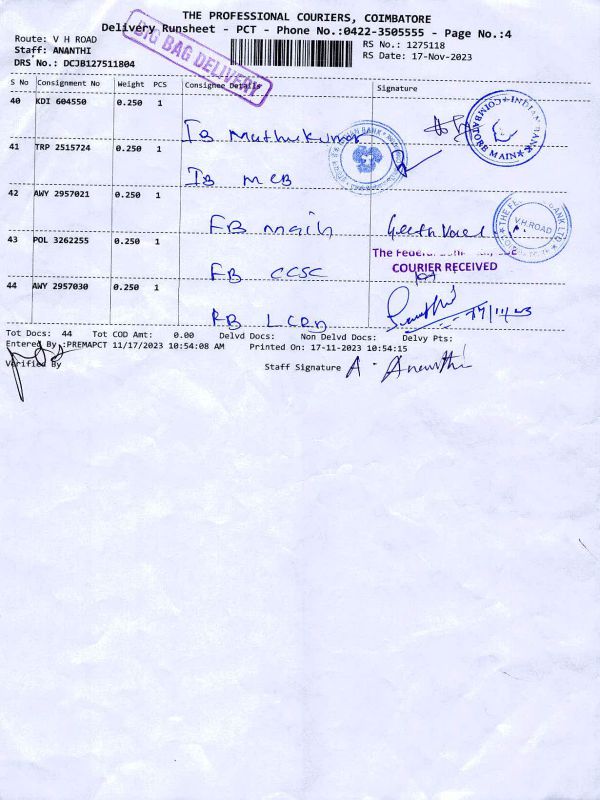 THE PROFESSIONAL COURIERS, COIMBATORE
Delivery Runsheet - PCT - Phone No.:0422-3505555 - Page No.:4
Route: V H ROAD
Staff: ANANTHI
DRS No.: DCJB127511804
BIG BAG DELIVERY
RS No.: 1275118
RS Date: 17-Nov-2023
S No Consignment No Weight PCS Consignee Details Signature
40 KDI 604550 0.250 1
IB Muthukumar
COIMBATORE MAIN
41 TRP 2515724 0.250 1
IB MCB
42 AWY 2957021 0.250 1
FB main
V.H.ROAD
43 POL 3262255 0.250 1
The Federal
COURIER RECEIVED
FB CCSC
44 AWY 2957030 0.250 1
17/11/23
FB LCRD
Tot Docs: 44 Tot COD Amt: 0.00 Delvd Docs: Non Delvd Docs: Delvy Pts:
Entered By :PREMAPCT 11/17/2023 10:54:08 AM Printed On: 17-11-2023 10:54:15
Verified By
Staff Signature A. Ananthi